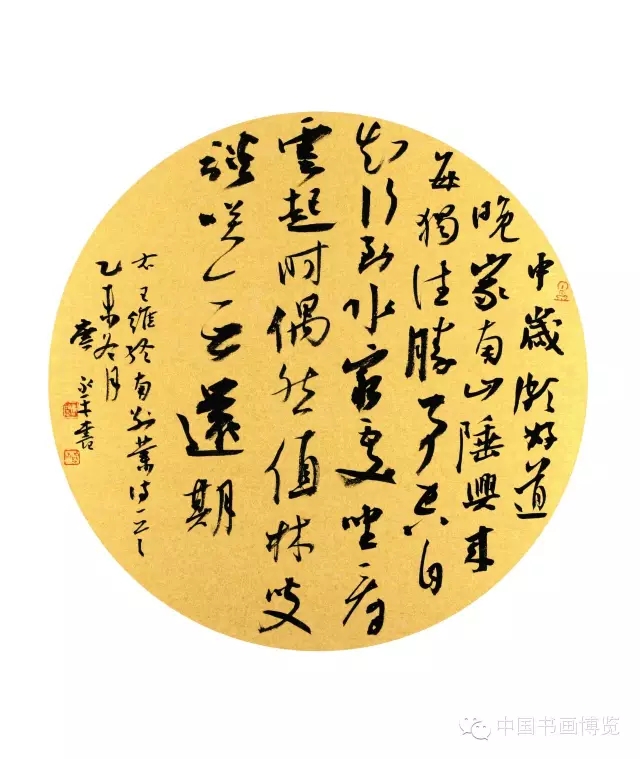 中歲頗好道
晚家南山陲興來
每獨往勝事空自
知行到水窮處坐看
雲起時偶然值林叟
談咲无還期
右王維終南别業诗一首
乙未冬月
永平書
中国书画博览